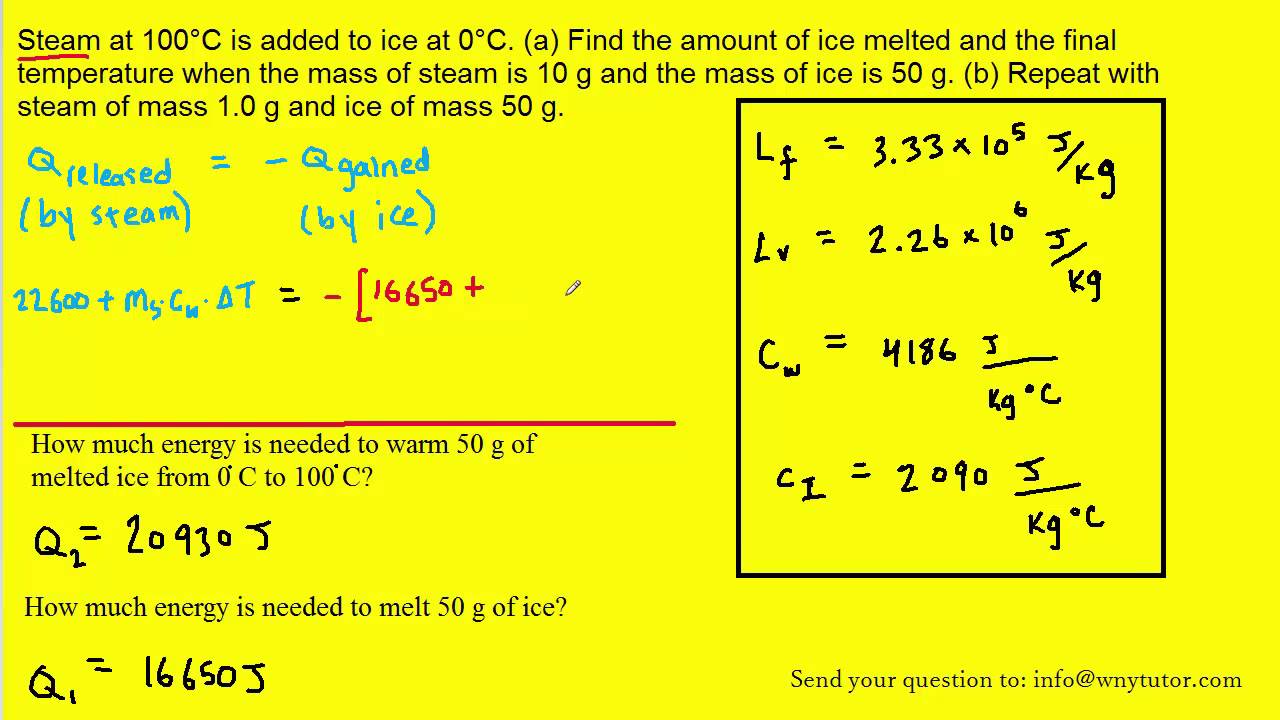 Steam at 100°C is added to ice at 0°C. (a) Find the amount of ice melted and the final
temperature when the mass of steam is 10 g and the mass of ice is 50 g. (b) Repeat with
steam of mass 1.0 g and ice of mass 50 g.
Q released = - Q gained
(by steam) (by ice)
22600 + ms·Cw·ΔT = - [16650 +
How much energy is needed to warm 50 g of
melted ice from 0°C to 100°C?
Q2 = 20930 J
How much energy is needed to melt 50 g of ice?
Q1 = 16650 J
Lf = 3.33 × 10^5 J/Kg
Lv = 2.26 × 10^6 J/Kg
Cw = 4186 J/Kg°C
CI = 2090 J/Kg°C
Send your question to: info@wnytutor.com